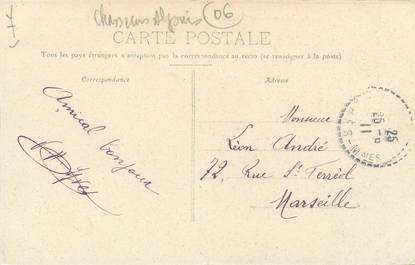 Chasseurs Alpins 06
CARTE POSTALE
Tous les pays étrangers n'acceptent pas la correspondance au recto (se renseigner à la poste)
Correspondance
Adresse
Amical bonjour
Monsieur
Léon André
72, Rue St Ferréol
Marseille
25
11